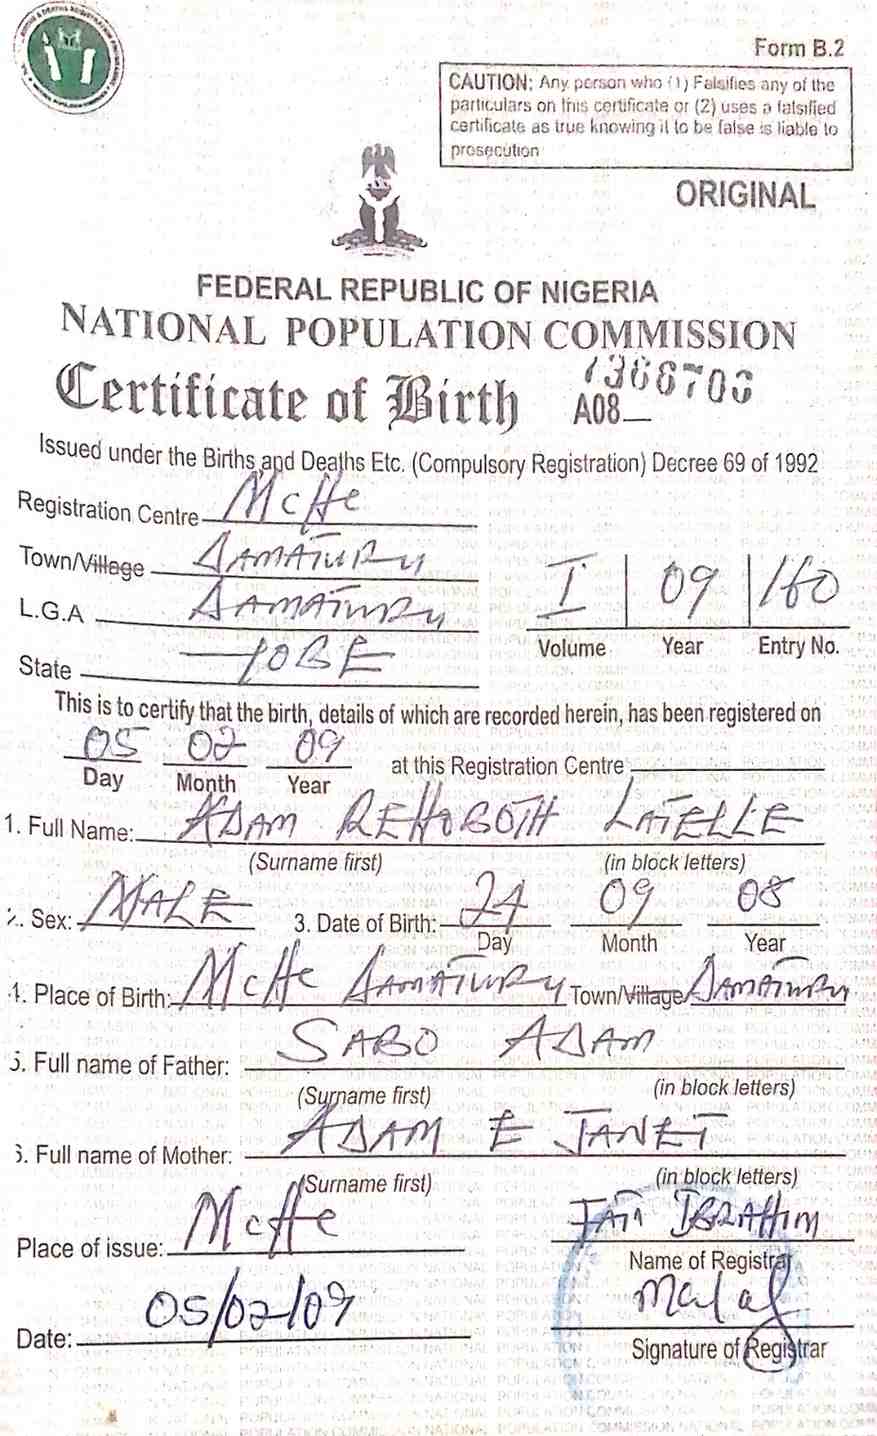 Form B.2
CAUTION: Any person who (1) Falsifies any of the
particulars on this certificate or (2) uses a falsified
certificate as true knowing it to be false is liable to
prosecution
ORIGINAL
FEDERAL REPUBLIC OF NIGERIA
NATIONAL POPULATION COMMISSION
Certificate of Birth
A08
Issued under the Births and Deaths Etc. (Compulsory Registration) Decree 69 of 1992
Registration Centre McHe
Town/Village DAMATURU
L.G.A DAMATURU
I 09 160
Volume Year Entry No.
State YOBE
This is to certify that the birth, details of which are recorded herein, has been registered on
05 02 09 at this Registration Centre
Day Month Year
1. Full Name: ADAM REHOBOTH LATELLE
(Surname first) (in block letters)
2. Sex: MALE 3. Date of Birth: 24 09 08
Day Month Year
4. Place of Birth: McHe DAMATURU Town/Village DAMATURU
5. Full name of Father: SABO ADAM
(Surname first) (in block letters)
6. Full name of Mother: ADAM E JANET
(Surname first) (in block letters)
Place of issue: McHe IBRAHIM
Name of Registrar
Date: 05/02/09
Signature of Registrar